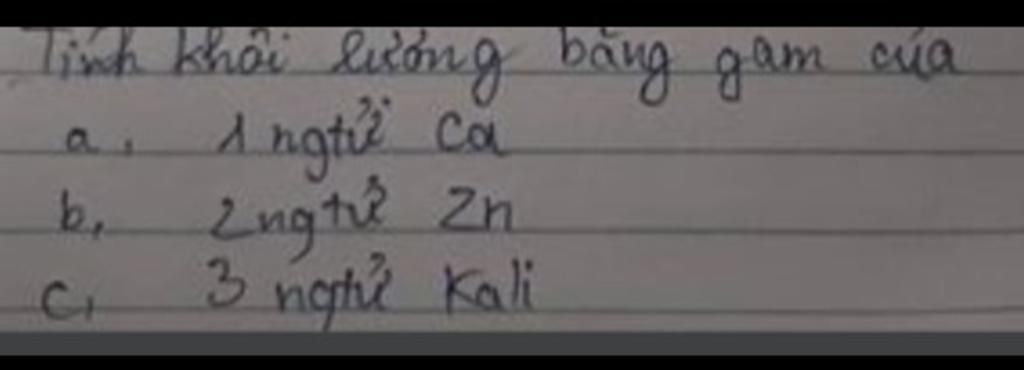 Tính khối lượng bằng gam của
a, 1 ngtử Ca
b, 2 ngtử Zn
c, 3 ngtử Kali